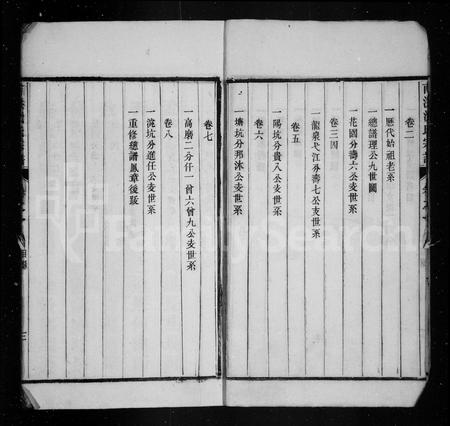 卷二
一歷代始祖老系
一總譜理公九世圖
一花園分壽六公支世系
卷三四
一龍泉弋江分壽七公支世系
卷五
一陽坑分貴八公支世系
卷六
一塘坑分邦沐公支世系
卷七
一高磨二分仟一曾六曾九公支世系
卷八
一流坑分進任公支世系
一重修總譜鳳章後跋
三
FamilySearch